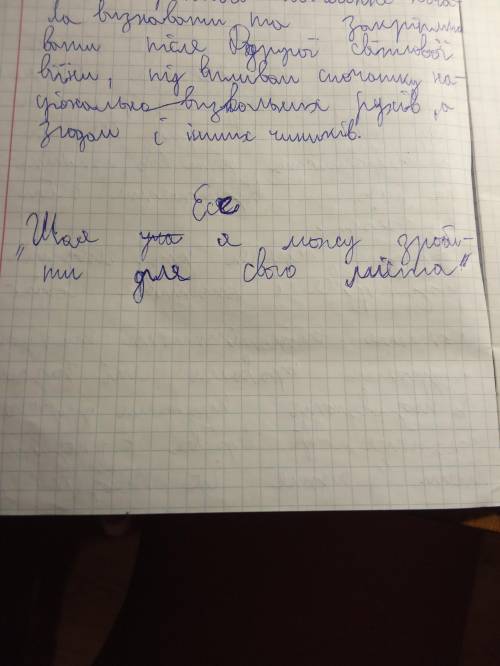 ла визнавати та закріплю
вати після Другої світової
війни, під впливом спочатку на-
ціонально визвольних рухів, а
згодом і інших чинників.
Есе
"Шоя я можу зроби-
ти для свого міста"